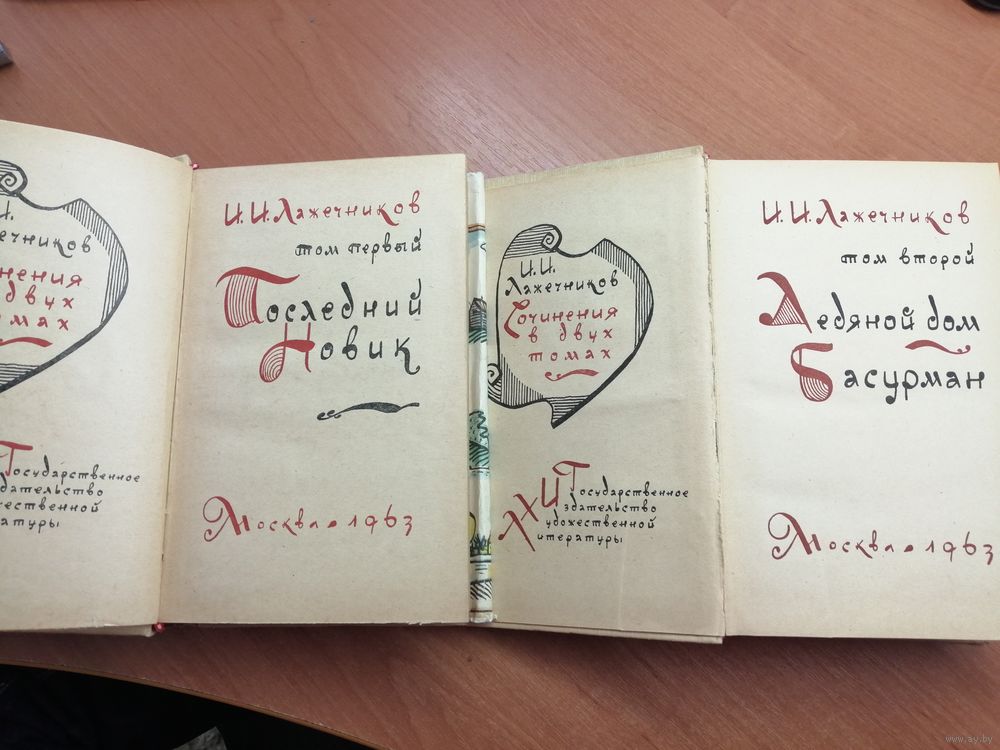 И.
нения
двух
мах
Государственное
дательство
жественной
атуры
И. И. Лажечников
том первый
Последний
Новик
Москва • 1963
И. И.
Лажечников
Сочинения
в двух
томах
Государственное
Издательство
Художественной
Литературы
И. И. Лажечников
том второй
Ледяной дом
Басурман
Москва • 1963
www.ay.by